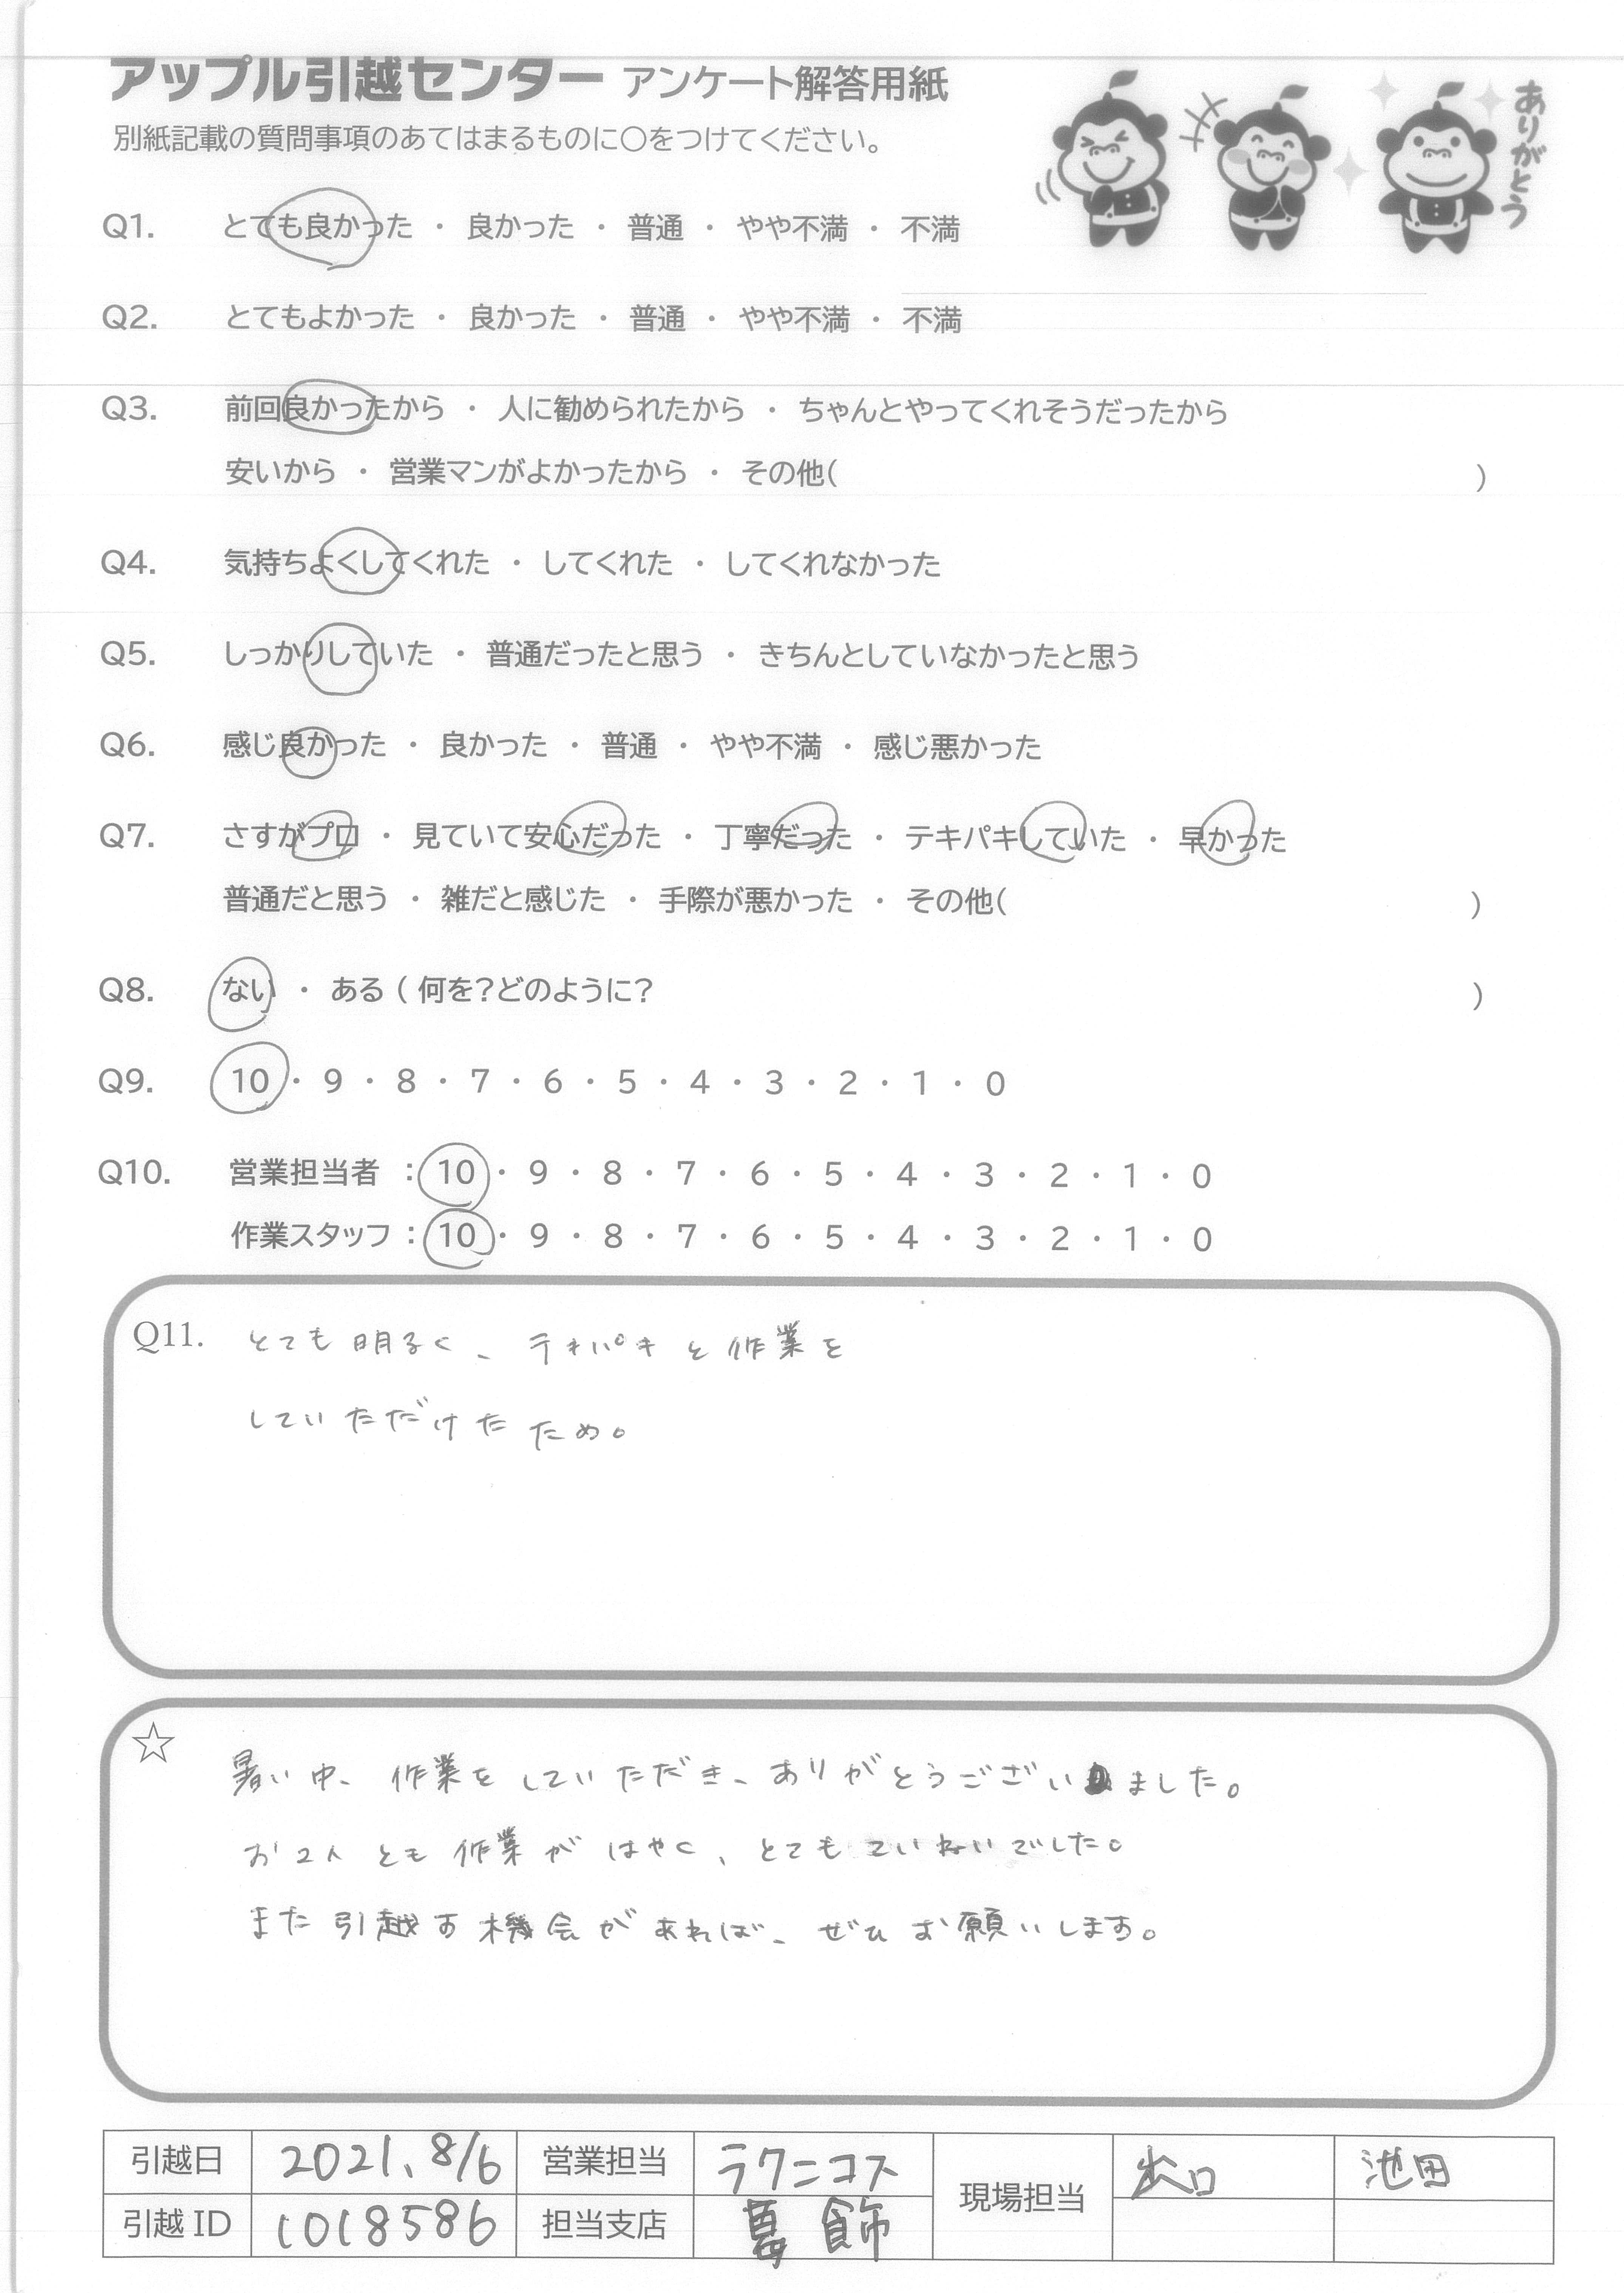 アップル引越センター アンケート解答用紙
別紙記載の質問事項のあてはまるものに○をつけてください。
ありがとう
Q1. とても良かった ・ 良かった ・ 普通 ・ やや不満 ・ 不満
Q2. とてもよかった ・ 良かった ・ 普通 ・ やや不満 ・ 不満
Q3. 前回良かったから ・ 人に勧められたから ・ ちゃんとやってくれそうだったから
安いから ・ 営業マンがよかったから ・ その他( )
Q4. 気持ちよくしてくれた ・ してくれた ・ してくれなかった
Q5. しっかりしていた ・ 普通だったと思う ・ きちんとしていなかったと思う
Q6. 感じ良かった ・ 良かった ・ 普通 ・ やや不満 ・ 感じ悪かった
Q7. さすがプロ ・ 見ていて安心だった ・ 丁寧だった ・ テキパキしていた ・ 早かった
普通だと思う ・ 雑だと感じた ・ 手際が悪かった ・ その他( )
Q8. ない ・ ある ( 何を?どのように? )
Q9. 10 ・ 9 ・ 8 ・ 7 ・ 6 ・ 5 ・ 4 ・ 3 ・ 2 ・ 1 ・ 0
Q10. 営業担当者 : 10 ・ 9 ・ 8 ・ 7 ・ 6 ・ 5 ・ 4 ・ 3 ・ 2 ・ 1 ・ 0
作業スタッフ : 10 ・ 9 ・ 8 ・ 7 ・ 6 ・ 5 ・ 4 ・ 3 ・ 2 ・ 1 ・ 0
Q11. とても明るく、テキパキと作業を
していただけたため。
☆ 暑い中、作業をしていただき、ありがとうございました。
お2人とも作業がはやく、とてもていねいでした。
また引越す機会があれば、ぜひお願いします。
引越日 2021、8/6 営業担当 ラクニコス 現場担当 出口 池田
引越ID 1018586 担当支店 葛飾